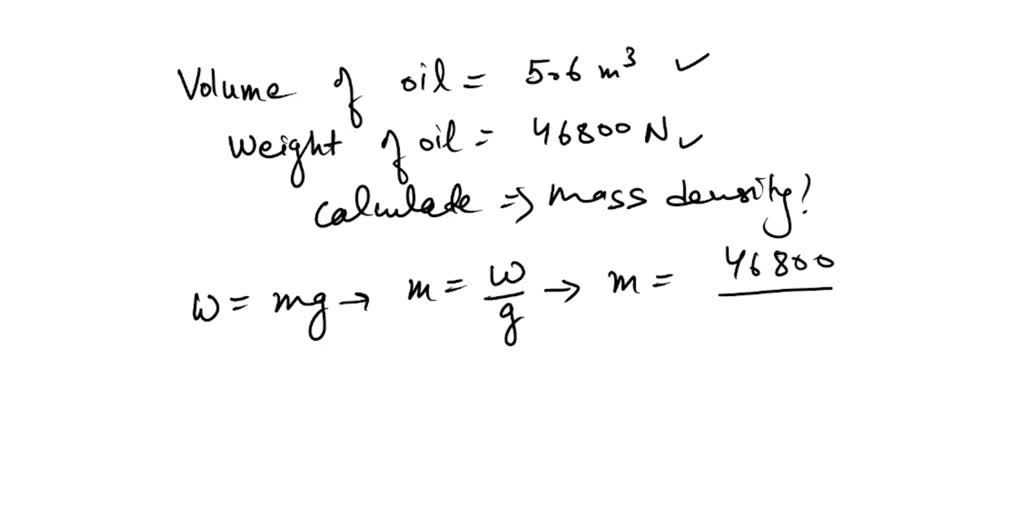 Volume of oil = 5.6 m³ ✓
Weight of oil = 46800 N ✓
Calculate ⇒ mass density?
W = mg → m = W/g → m = 46800/